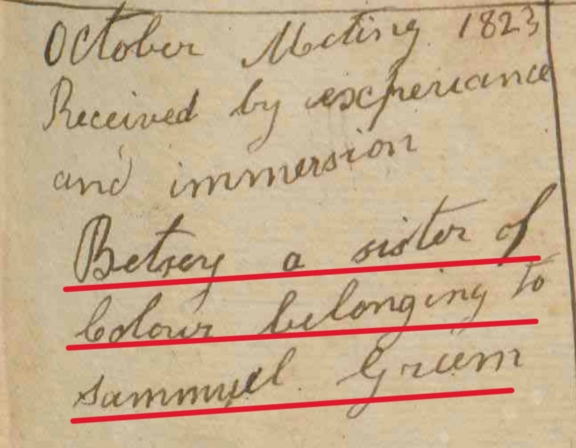 October Meting 1823
Received by experiance
and immersion
Betsey a sister of
Colour belonging to
Sammuel Green